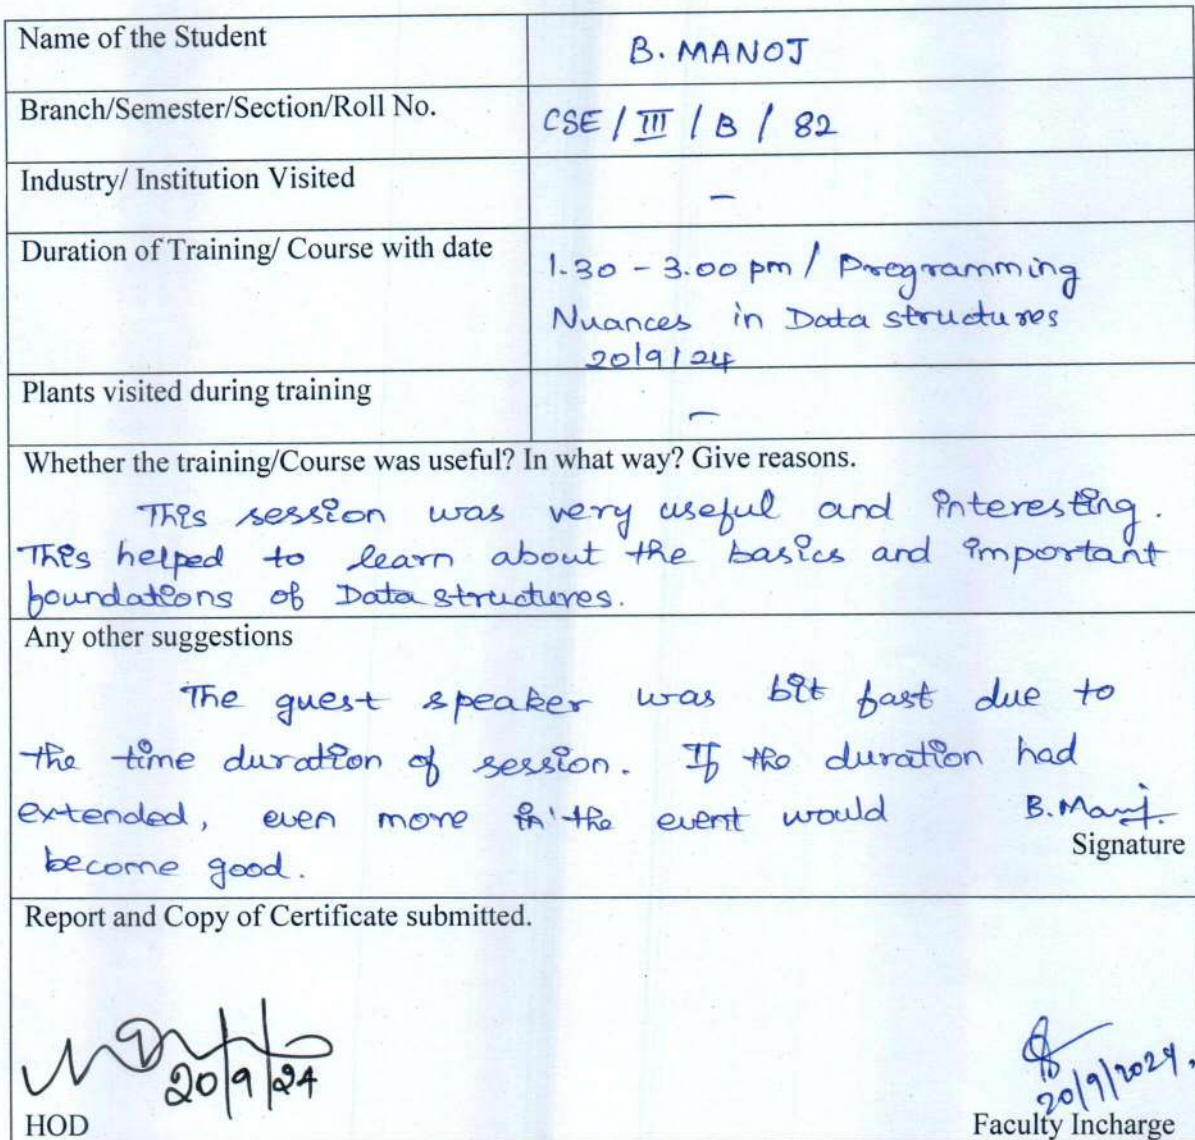 Name of the Student
B. MANOJ
Branch/Semester/Section/Roll No.
CSE / III / B / 82
Industry/ Institution Visited
-
Duration of Training/ Course with date
1.30 - 3.00 pm / Programming
Nuances in Data structures
20/9/24
Plants visited during training
-
Whether the training/Course was useful? In what way? Give reasons.
This session was very useful and interesting.
This helped to learn about the basics and important
foundations of Data structures.
Any other suggestions
The guest speaker was bit fast due to
the time duration of session. If the duration had
extended, even more in the event would
B.Manoj.
Signature
become good.
Report and Copy of Certificate submitted.
20/9/24
HOD
20/9/2024.
Faculty Incharge